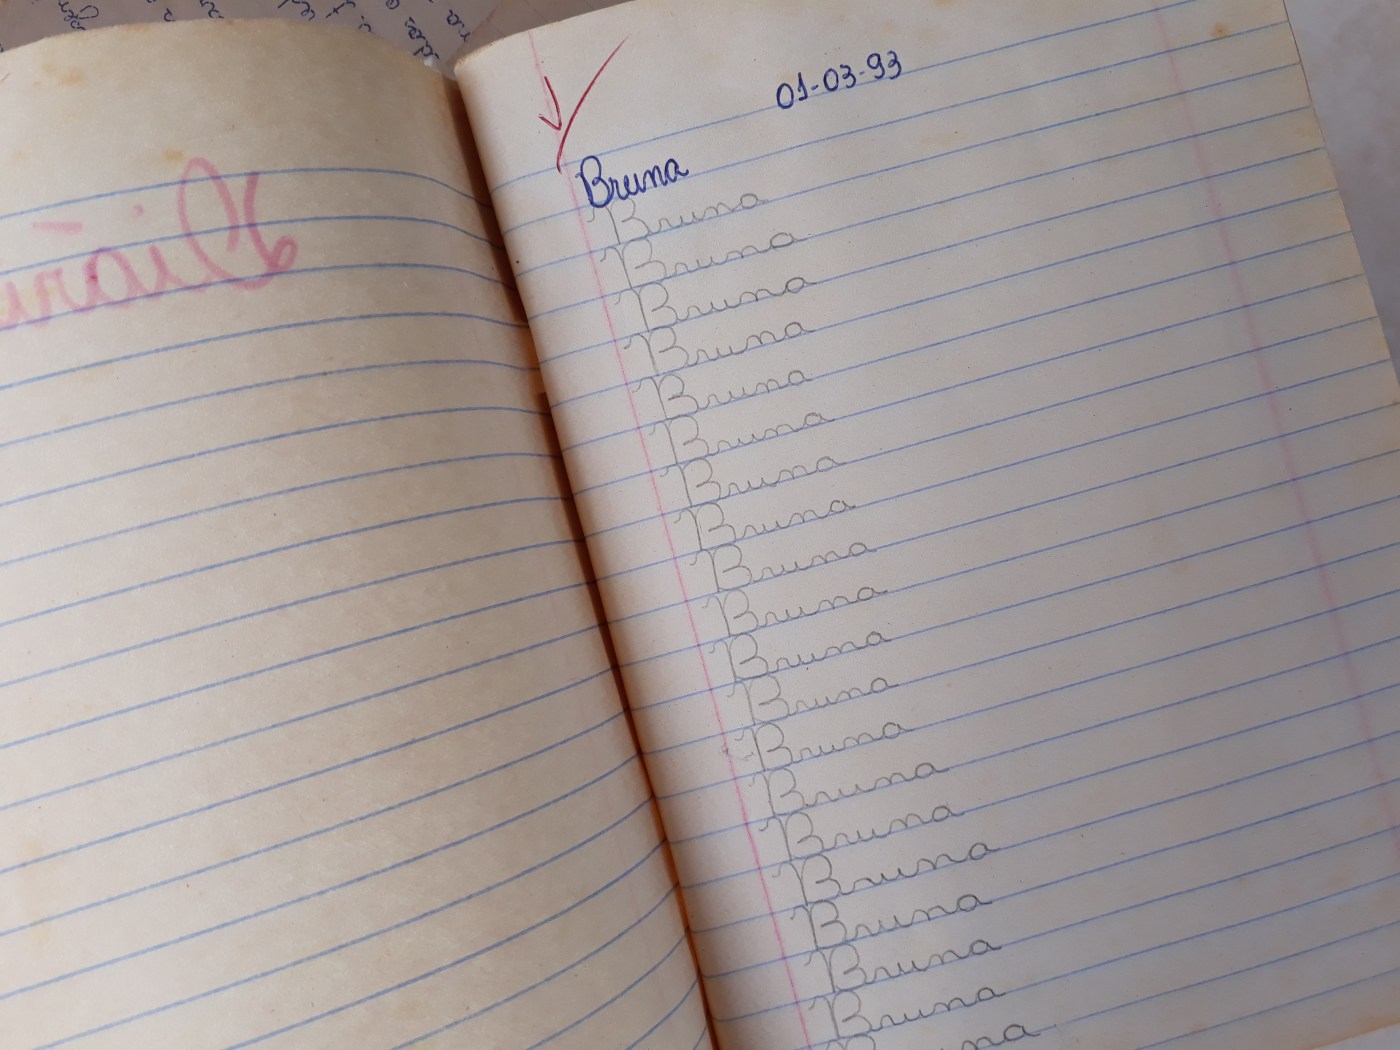 01-03-93
Bruna
Bruna
Bruna
Bruna
Bruna
Bruna
Bruna
Bruna
Bruna
Bruna
Bruna
Bruna
Bruna
Bruna
Bruna
Bruna
Bruna
Bruna
Bruna
Bruna
Bruna